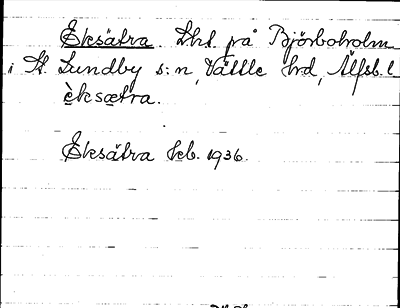 Eksätra. Lht på Björboholm
i St. Lundby s:n, Vättle hrd, Älfsb. l
èksætra.
Eksätra kb. 1936.